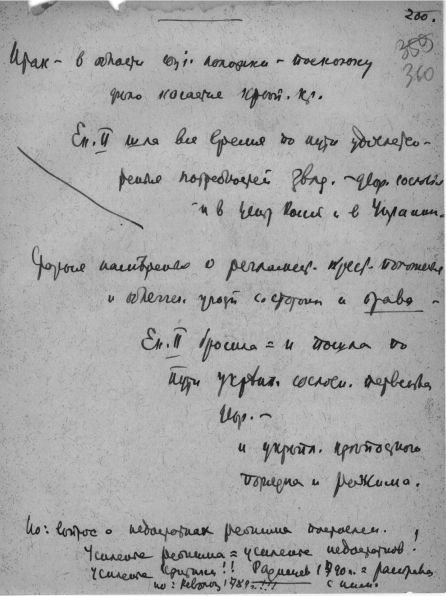 200.
359
360
Итак – в области соц. политики – поскольку
дело касается крест. кл.
Ек. II шла все время по пути удовлетво-
рения потребностей двор. сослов
и в центр и в Украине.
о регламент. крест.
и облегчен. и права –
Ек. II бросила = и пошла по
пути укрепл. сословн. первенства
двор. –
и укрепл. крепостного
порядка и режима.
Но: вопрос о недостатках режима поставлен.
Усиление режима = усиление недостатков!
Усиление критики!! Радищев 1790 г. = расправа
но: Револ. 1789 г.!!! с ним.